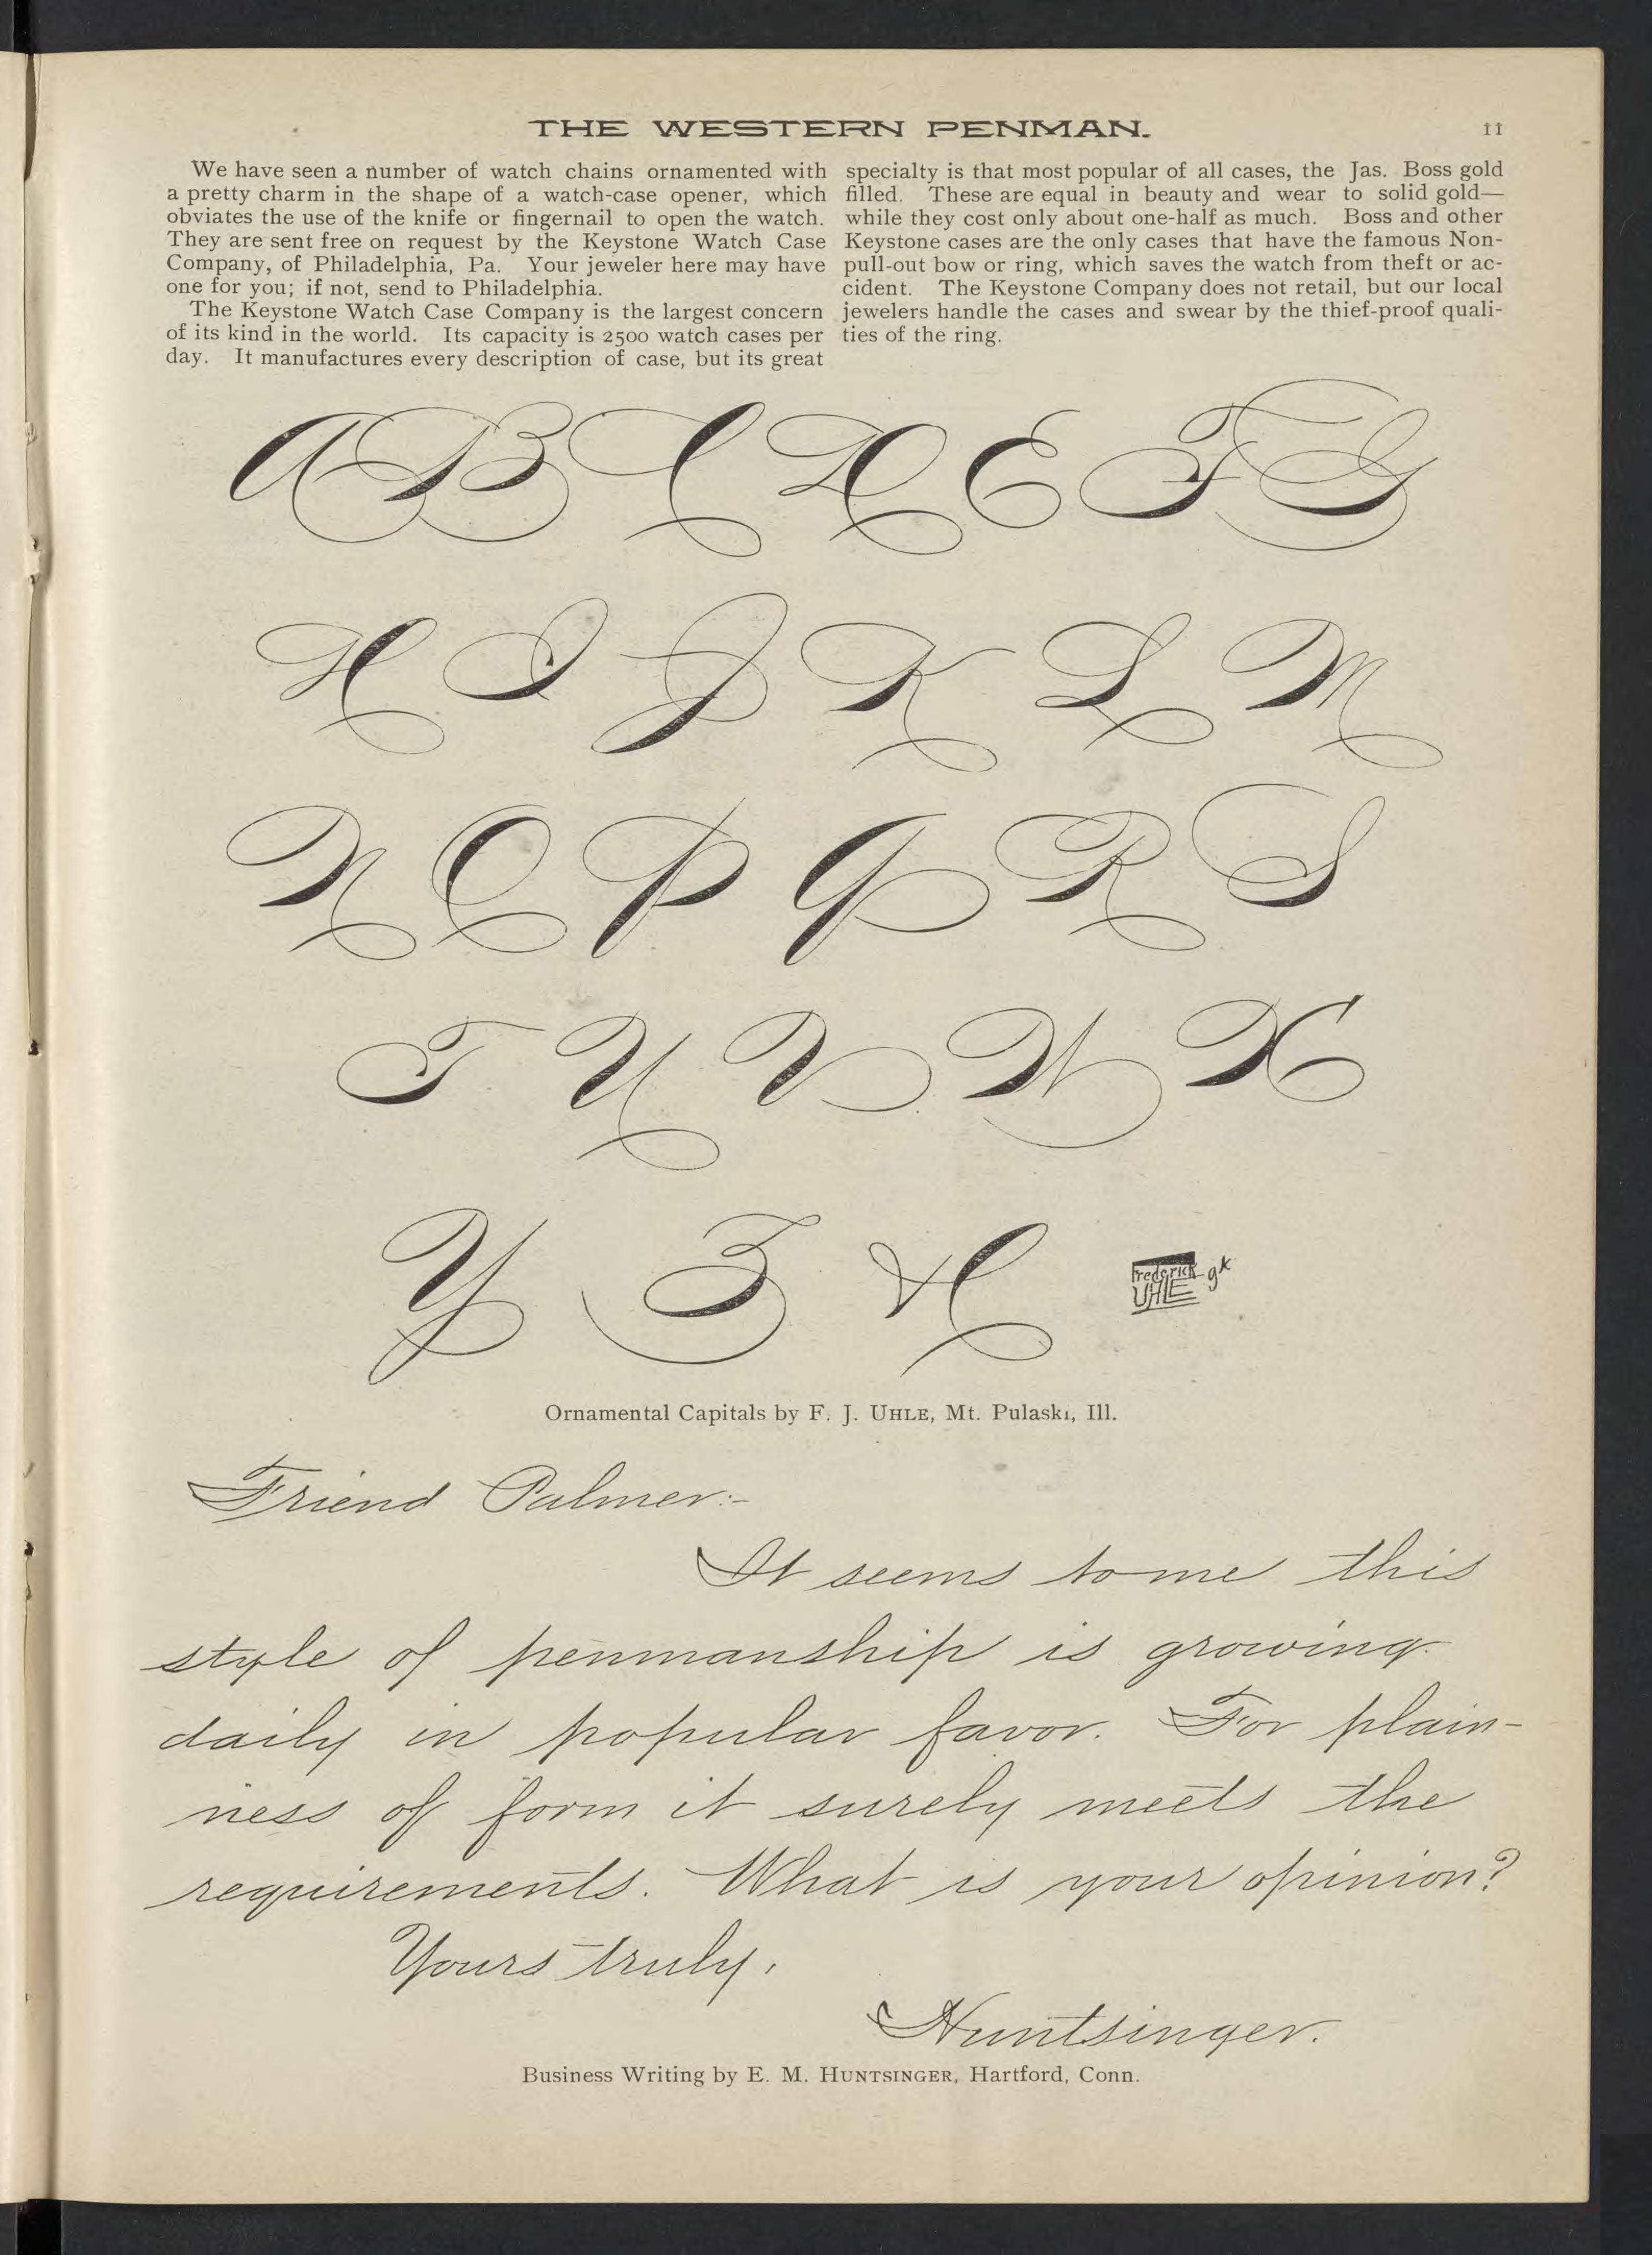 THE WESTERN PENMAN.
11
We have seen a number of watch chains ornamented with
a pretty charm in the shape of a watch-case opener, which
obviates the use of the knife or fingernail to open the watch.
They are sent free on request by the Keystone Watch Case
Company, of Philadelphia, Pa. Your jeweler here may have
one for you; if not, send to Philadelphia.
The Keystone Watch Case Company is the largest concern
of its kind in the world. Its capacity is 2500 watch cases per
day. It manufactures every description of case, but its great
specialty is that most popular of all cases, the Jas. Boss gold
filled. These are equal in beauty and wear to solid gold—
while they cost only about one-half as much. Boss and other
Keystone cases are the only cases that have the famous Non-
pull-out bow or ring, which saves the watch from theft or ac-
cident. The Keystone Company does not retail, but our local
jewelers handle the cases and swear by the thief-proof quali-
ties of the ring.
A B C D E F G
H I J K L M
N O P Q R S
T U V W X
Y Z &
Frederick
UHLE
Ornamental Capitals by F. J. UHLE, Mt. Pulaski, Ill.
Friend Palmer:-
It seems to me this
style of penmanship is growing
daily in popular favor. For plain-
ness of form it surely meets the
requirements. What is your opinion?
Yours truly,
Huntsinger.
Business Writing by E. M. HUNTSINGER, Hartford, Conn.